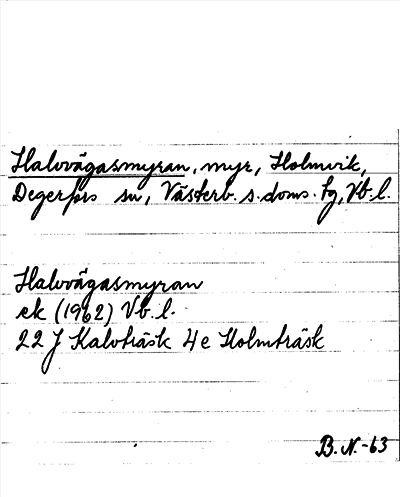 Halvvägasmyran, myr, Holmvik,
Degerfors sn, Västerb. s. doms. tg, Vb. l.
Halvvägasmyran
ek (1962) Vb. l.
22 J Kalvträsk 4e Holmträsk
B. N. -63